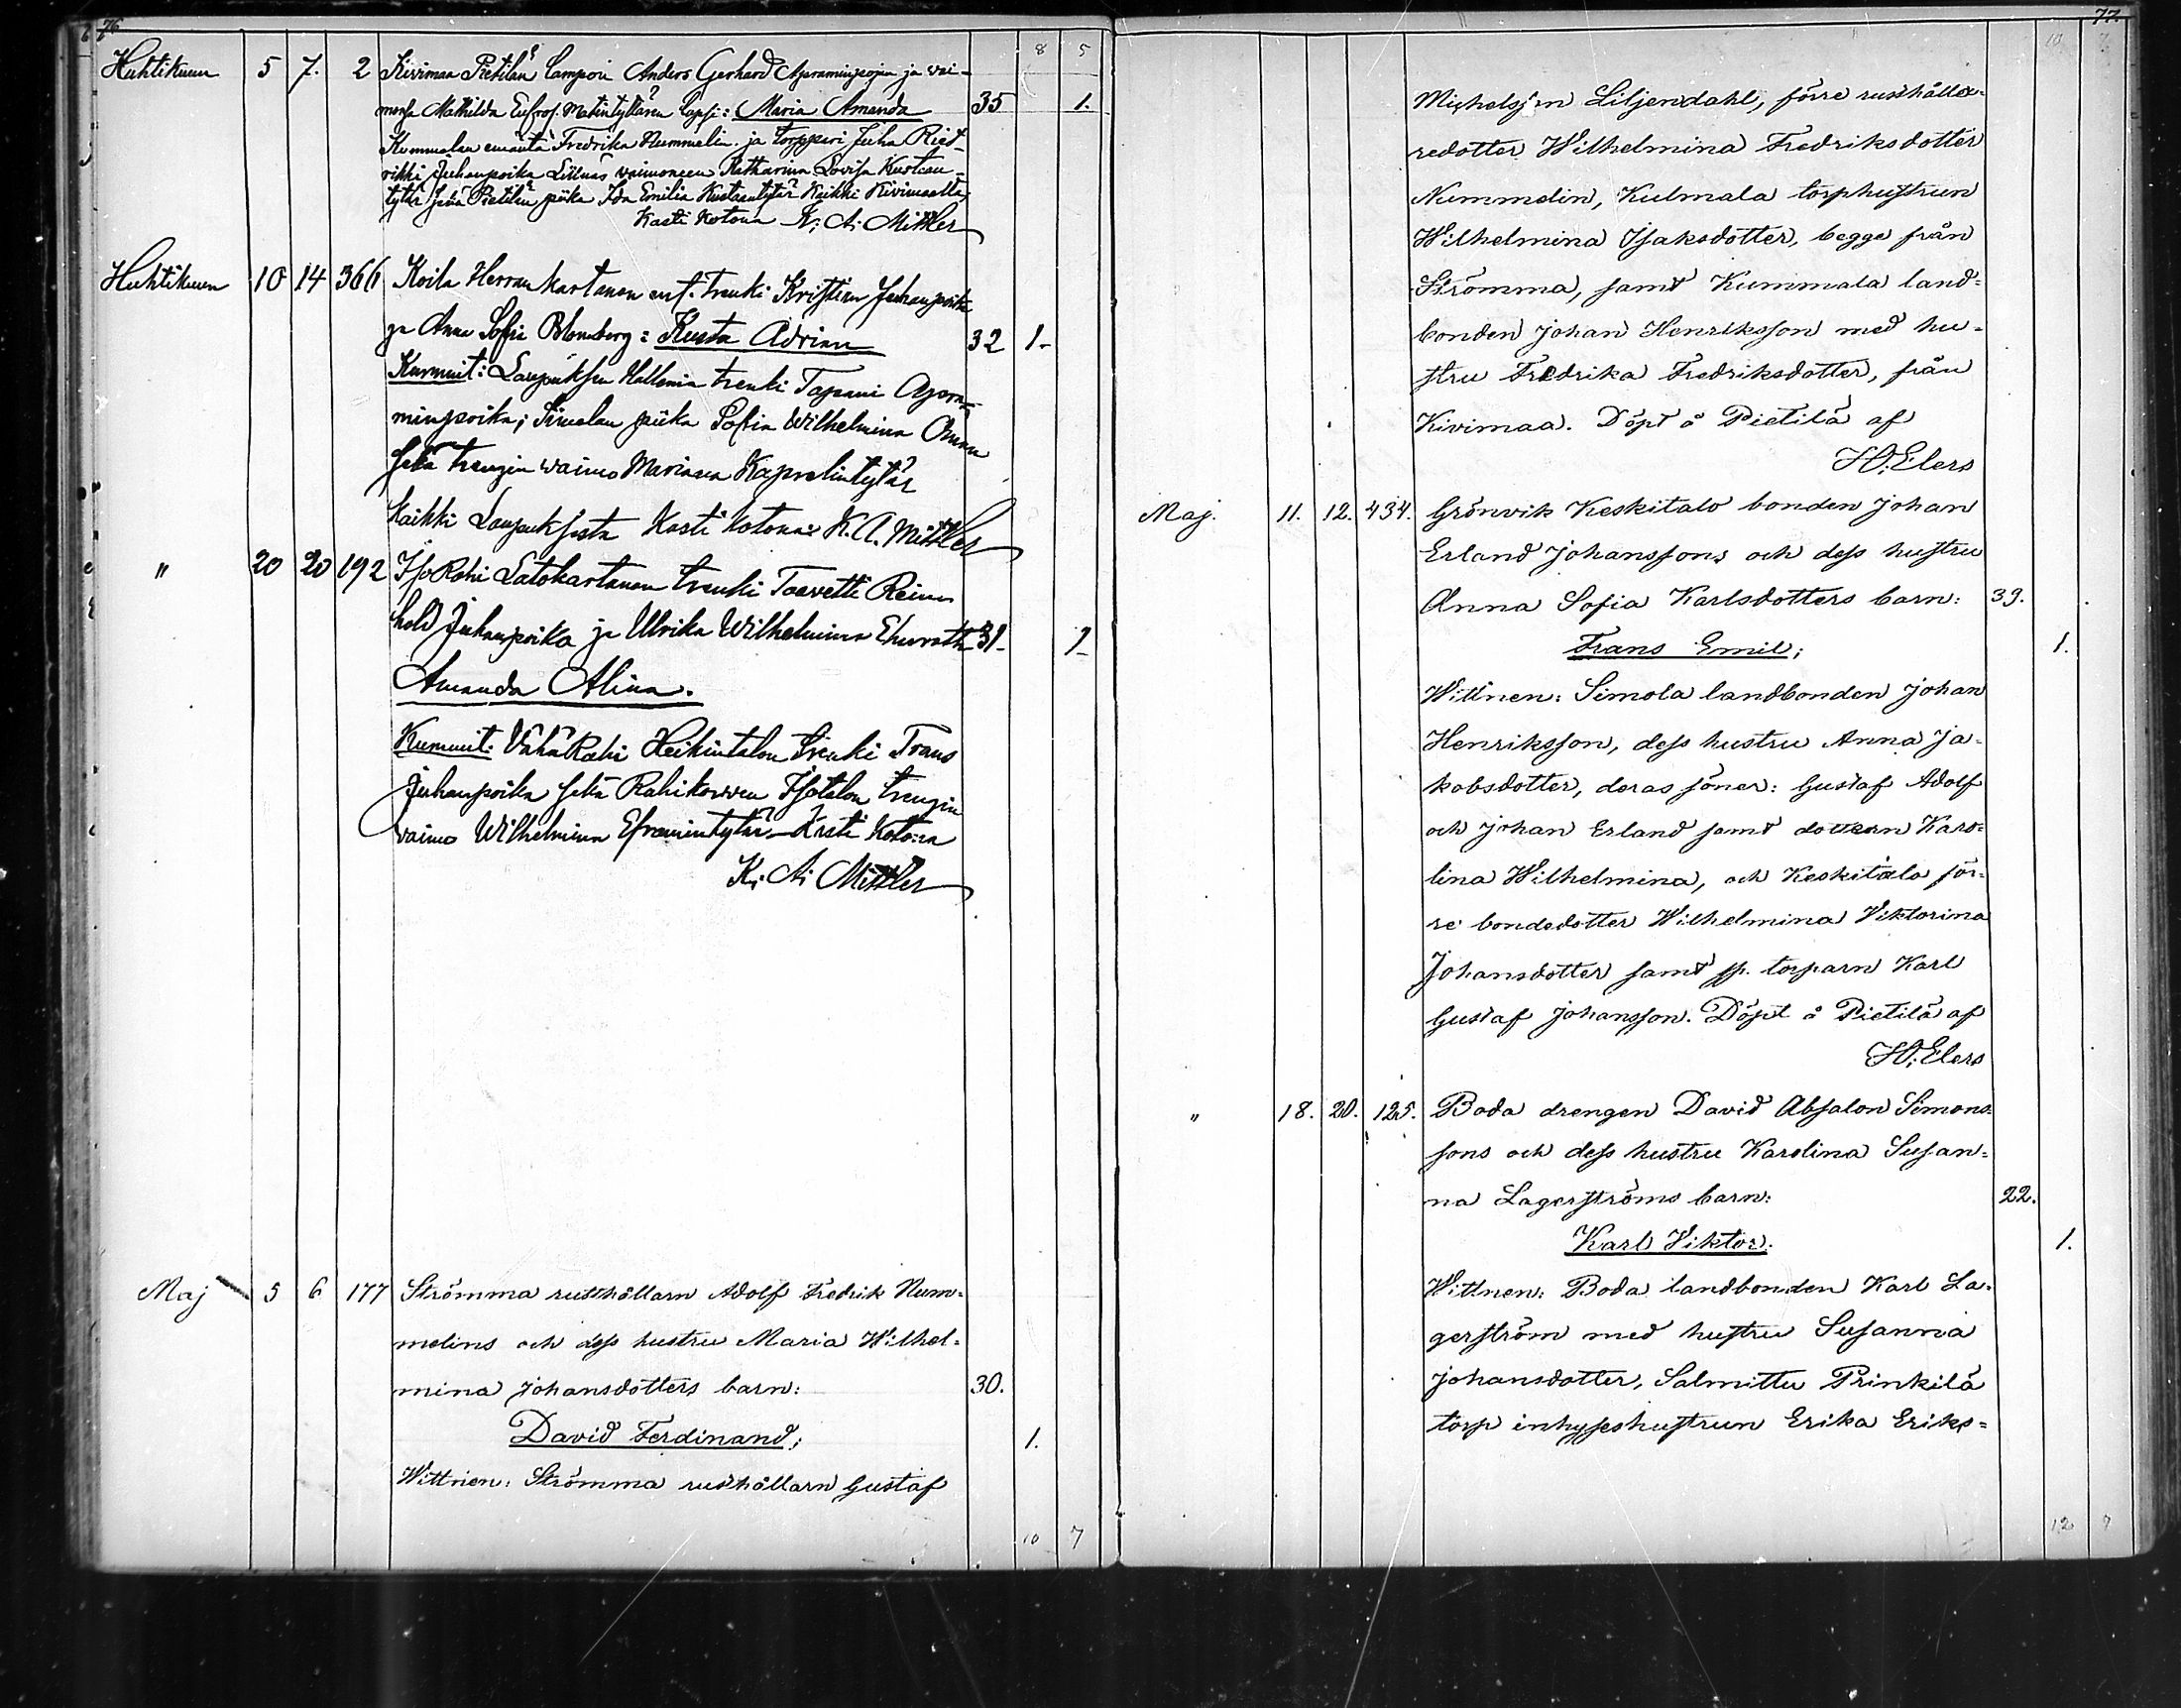 76
8 5
Huhtikuun 5 7. 2 Kivimaa Pietilän lampori Anders Gerhard Aperaminpojan ja vai-
monsa Mathilda Eufros. Matintyttären lapsi: Maria Amanda 35 1.
Kummalan emäntä Fredrika Nummelin ja torppari Juha Ried-
rikki Juhanpoika Liilnäs vaimoneen Katharina Lovisa Kustaan-
tytär sekä Pietilän piika Ida Emilia Kustaantytär Kaikki Kivimaalta,
Kasti kotona K. A. Mittler
Huhtikuun 10 14 366 Koila Herran kartanon ent. trenki Kristian Juhanpoika
ja Anna Sofia Blomberg: Kusta Adrian 32 1-
Kummit: Laupuksen trenki Tapani
minpoika; Simolan piika Sofia Wilhelmina
sekä trengin waimo Mariana Kaprelintytär
Kaikki Kasti kotona: K. A. Mittler
" 20 20 192 Iso Rahi Latokartanon trenki Taavetti Rein-
hold Juhanpoika ja Ulrika Wilhelmina 31- 1-
Amanda Alina.
Kummit: Vähä Rahi Heikintalon trenki Frans
Juhanpoika sekä Rahikorven Isotalon trengin
vaimo Wilhelmina Eframintytär - Kasti kotona
K. A. Mittler
Maj 5 6 177 Strömma rusthållarn Adolf Fredrik Num-
melins och dess hustru Maria Wilhel-
mina Johansdotters barn: 30.
David Ferdinand; 1.
Wittnen: Strömma rusthållarn Gustaf
10 7
77.
10 7
Michelsson Liljendahl, förre rusthålla-
redotter Wilhelmina Fredriksdotter
Nummelin, Kulmala torphustrun
Wilhelmina Isaksdotter, begge från
Strömma, samt Kummala land-
bonden Johan Henriksson med hu-
stru Fredrika Fredriksdotter, från
Kivimaa. Döpt å Pietilä af
H. Elers
Maj. 11. 12. 434. Grönvik Keskitalo bonden Johan
Erland Johanssons och dess hustru
Anna Sofia Karlsdotters barn: 39.
Frans Emil; 1.
Wittnen: Simola landbonden Johan
Henriksson, dess hustru Anna Ja-
kobsdotter, deras söner: Gustaf Adolf
och Johan Erland samt dottern Karo-
lina Wilhelmina, och Keskitalo för-
re bondedotter Wilhelmina Viktorina
Johansdotter samt torparn Karl
Gustaf Johansson. Döpt å Pietilä af
H. Elers
" 18. 20. 125. Boda drengen David Absalon Simons-
sons och dess hustru Karolina Susan-
na Lagerströms barn: 22.
Karl Viktor. 1.
Wittnen: Boda landbonden Karl La-
gerström med hustru Susanna
Johansdotter, Salmittu Prinkilä
torp inhyseshustrun Erika Eriks-
12 7